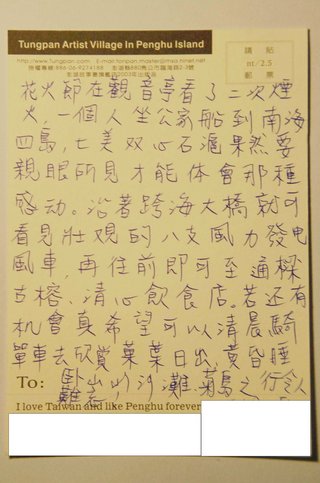 Tungpan Artist Village In Penghu Island
www.Tungpan.com
請 貼
nt/2.5
郵 票
花火節在觀音亭看了二次煙
火，一個人坐公家船到南海
四島，七美双心石滬果然要
親眼所見才能体會那種
感动。沿著跨海大橋就可
看見壯观的八支風力發电
風車，再往前即可至通樑
古榕、清心飲食店。若还有
机會真希望可以清晨騎
單車去欣賞菓葉日出、黃昏睡
To: 卧山水沙灘。菊島之行令人
難忘
I love Taiwan and like Penghu forever